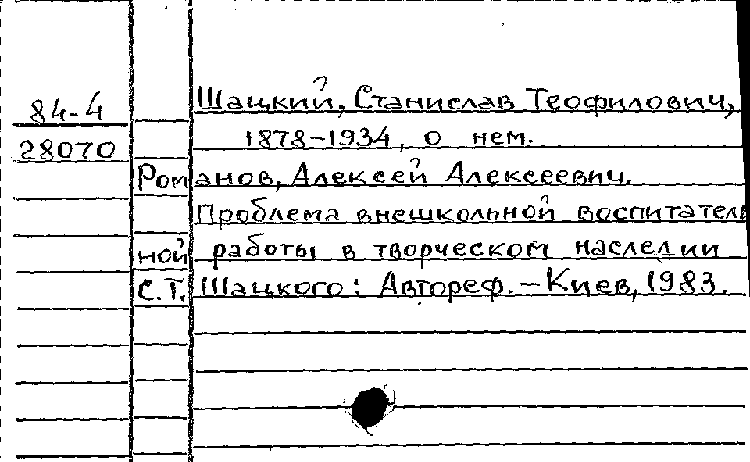 84-4 Шацкий, Станислав Теофилович,
28070 1878-1934, о нем.
Романов, Алексей Алексеевич.
Проблема внешкольной воспитатель
ной работы в творческом наследии
С.Т. Шацкого: Автореф. - Киев, 1983.